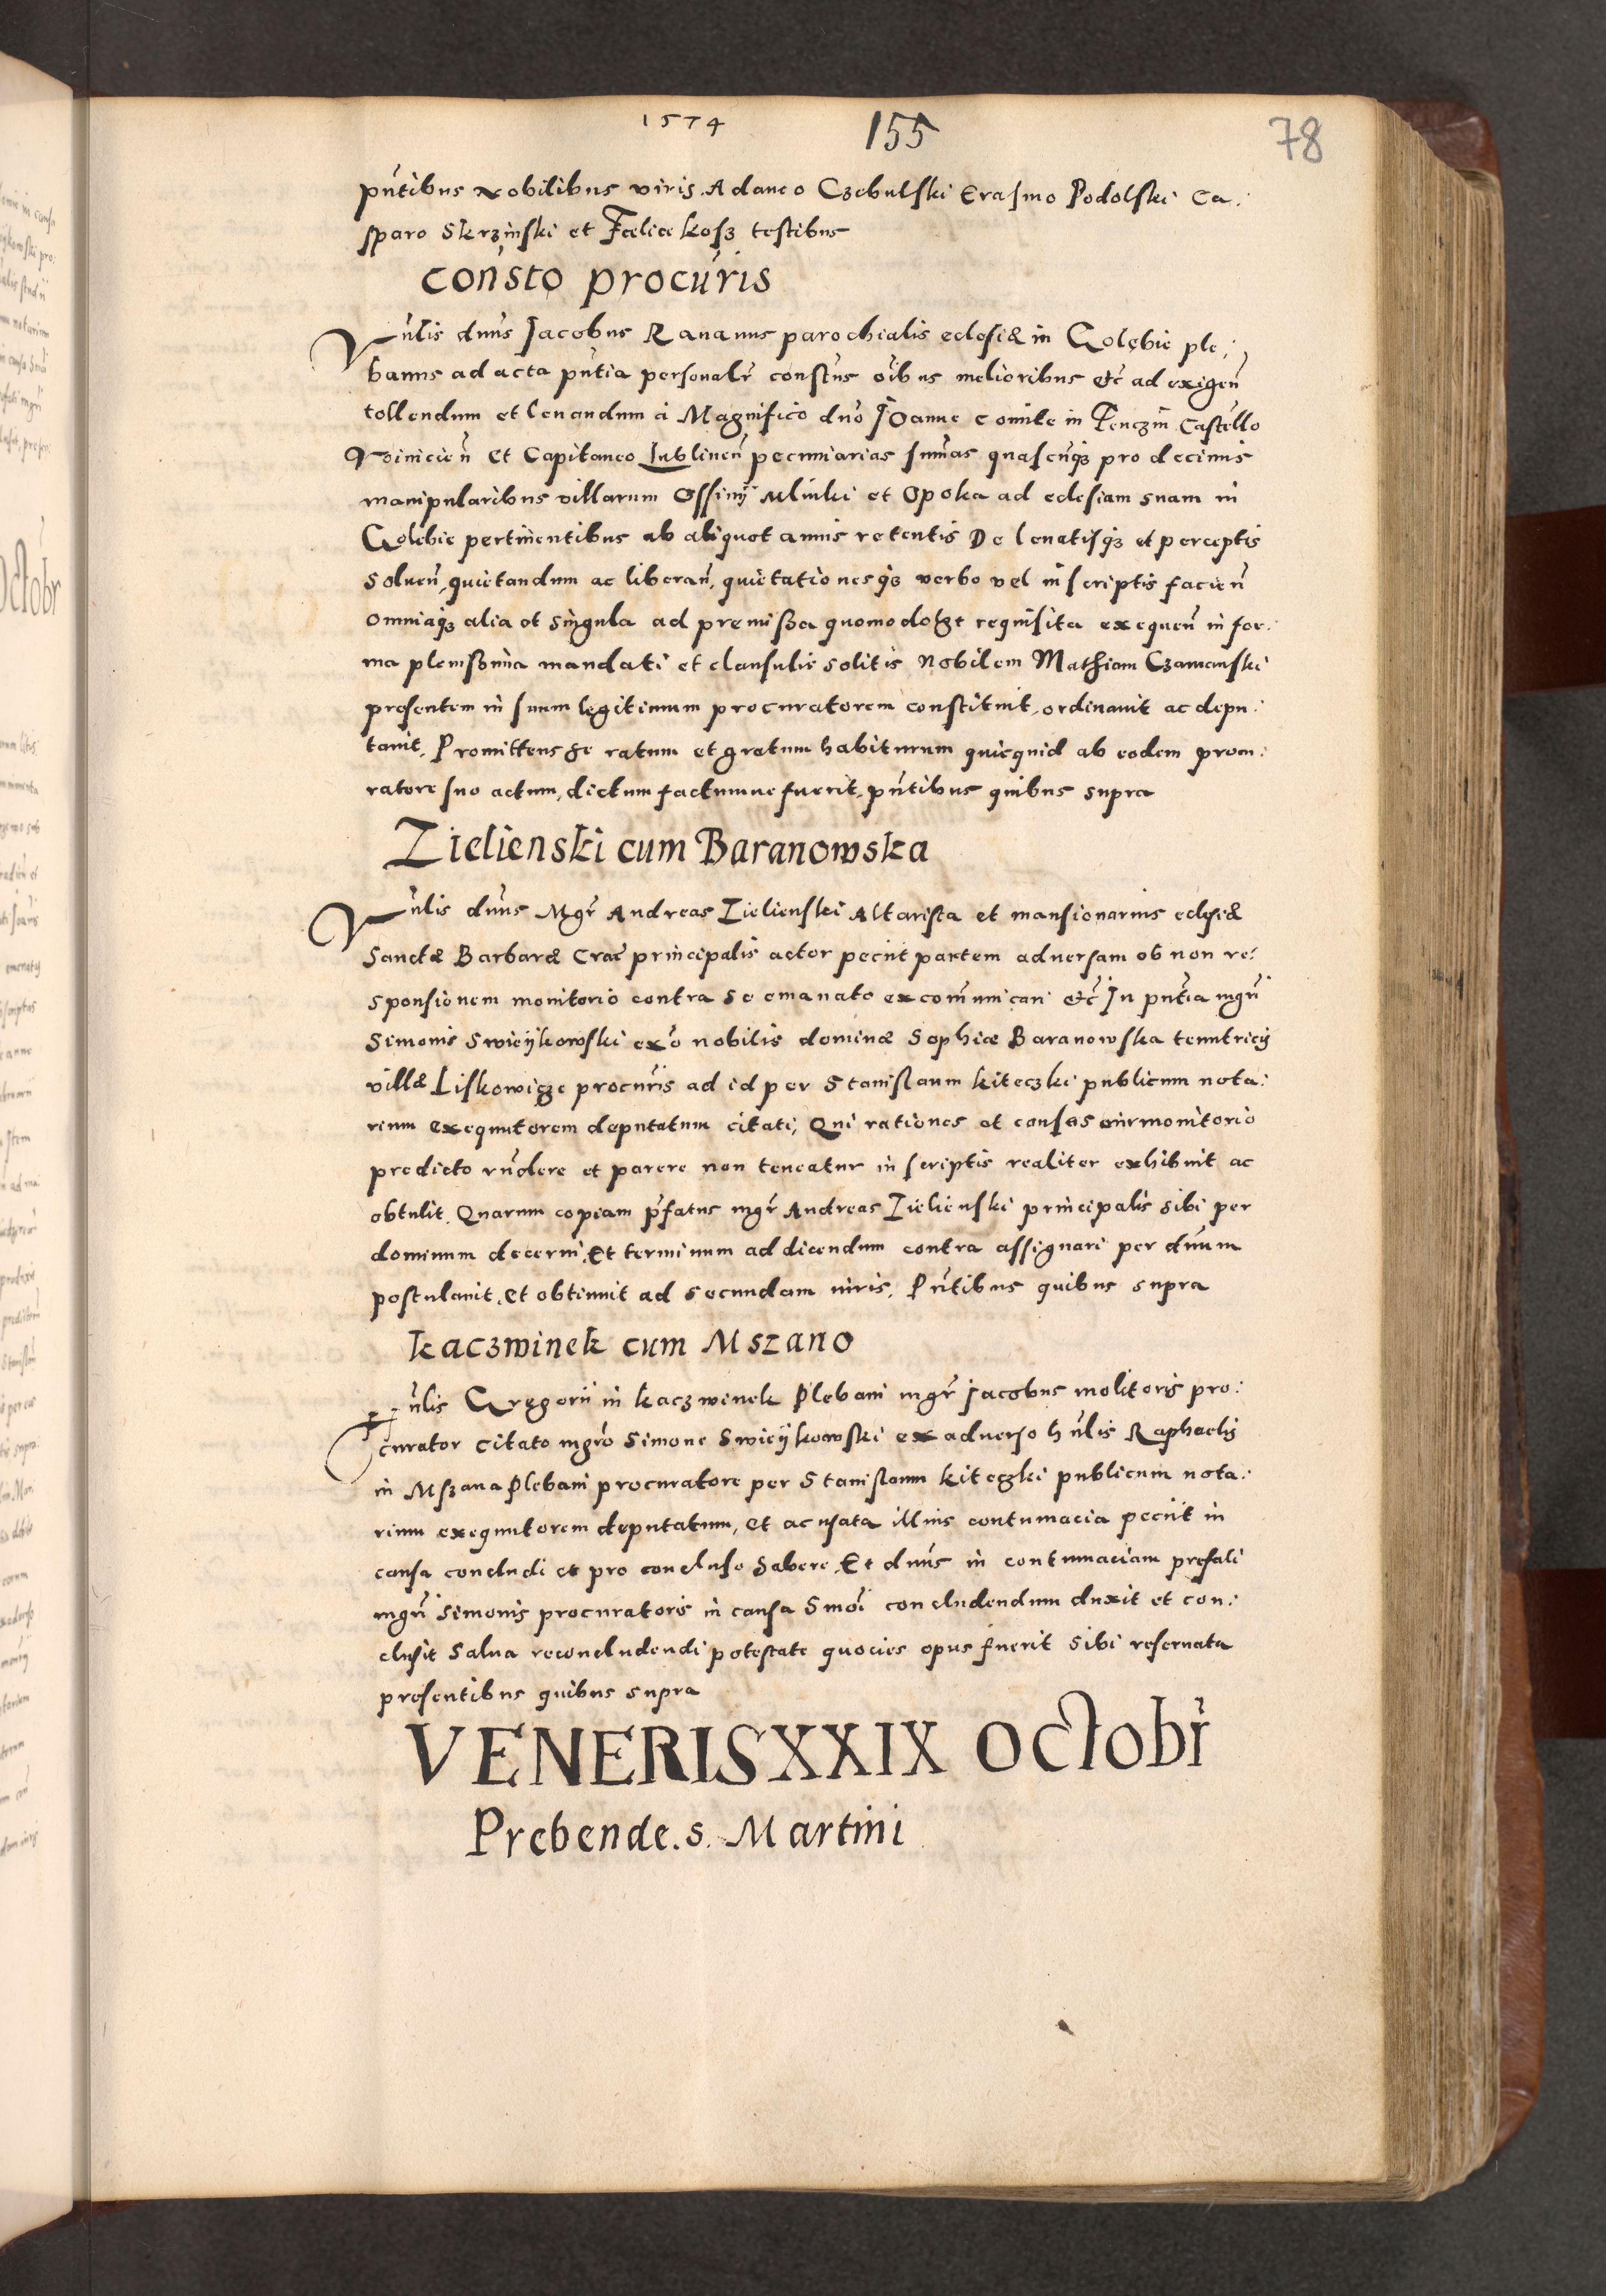 1574 155 78
pñtibus Nobilibus viris Adamo Czebulski Erasmo Podolski Ca:
sparo Skrzinski et Fælice kosz testibus
Consto procuris
Vñlis dnus Jacobus Rananus parochialis eclesiæ in Golębie ple:
banus ad acta pñtia personalr constns oibus melioribus etc ad exigen
tollendum et leuandum a Magnifico dno Joanne comite in Tenczin Castello
Voiniciens et Capitaneo Lublinen pecuniarias summas quascunq3 pro decimis
manipularibus villarum Ossiny Mlinki et Opoka ad eclesiam suam in
Golębie pertinentibus ab aliquot annis retentis De leuatisq3 et perceptis
soluen, quietandum ac liberan, quietationesq3 verbo vel in scriptis facien
omniaq3 alia et singula ad premissa quomodolZt requisita exequen in for:
ma plenissima mandati et clausulis solitis Nobilem Mathiam Czamanski
presentem in suum legitimum procuratorem constituit, ordinauit ac depu:
tauit. Promittens se ratum et gratum habiturum quicquid ab eodem procu:
ratore suo actum, dictum factumue fuerit. pñtibus quibus supra
Zielienski cum Baranowska
Vñlis dnus Mgr Andreas Zielienski Altarista et mansionarius eclesiæ
Sanctæ Barbaræ Crac principalis actor peciit partem aduersam ob non re:
sponsionem monitorio contra se emanato excommunicari etc In pñtia mgri
Simonis Swieijkowski exo nobilis dominæ Sophiæ Baranowska tenutricis
villæ Liskowicze procuris ad id per Stanislaum kiteczki publicum nota:
rium exequutorem deputatum citati, Qui rationes et causas cur monitorio
predicto rñdere et parere non teneatur in scriptis realiter exhibuit ac
obtulit. Quarum copiam pfatus mgr Andreas Zielienski principalis sibi per
dominum decerni, Et terminum ad dicendum contra assignari per dnum
postulauit, et obtinuit ad secundam iuris. Pñtibus quibus supra
kaczwinek cum Mszano
Hñlis Gregorii in kaczwinek Plebani mgr Jacobus molitoris pro:
curator citato mgro Simone Swieijkowski ex aduerso hñlis Raphaelis
in Mszana Plebani procuratore per Stanislaum kiteczki publicum nota:
rium exequutorem deputatum, et acusata illius contumacia peciit in
causa concludi et pro concluso habere. Et dnus in contumaciam prefati
mgri Simonis procuratoris in causa hmoi concludendum duxit et con:
clusit salua reconcludendi potestate quocies opus fuerit sibi reseruata
presentibus quibus supra
VENERIS XXIX Octobr
Prebende. S. Martini